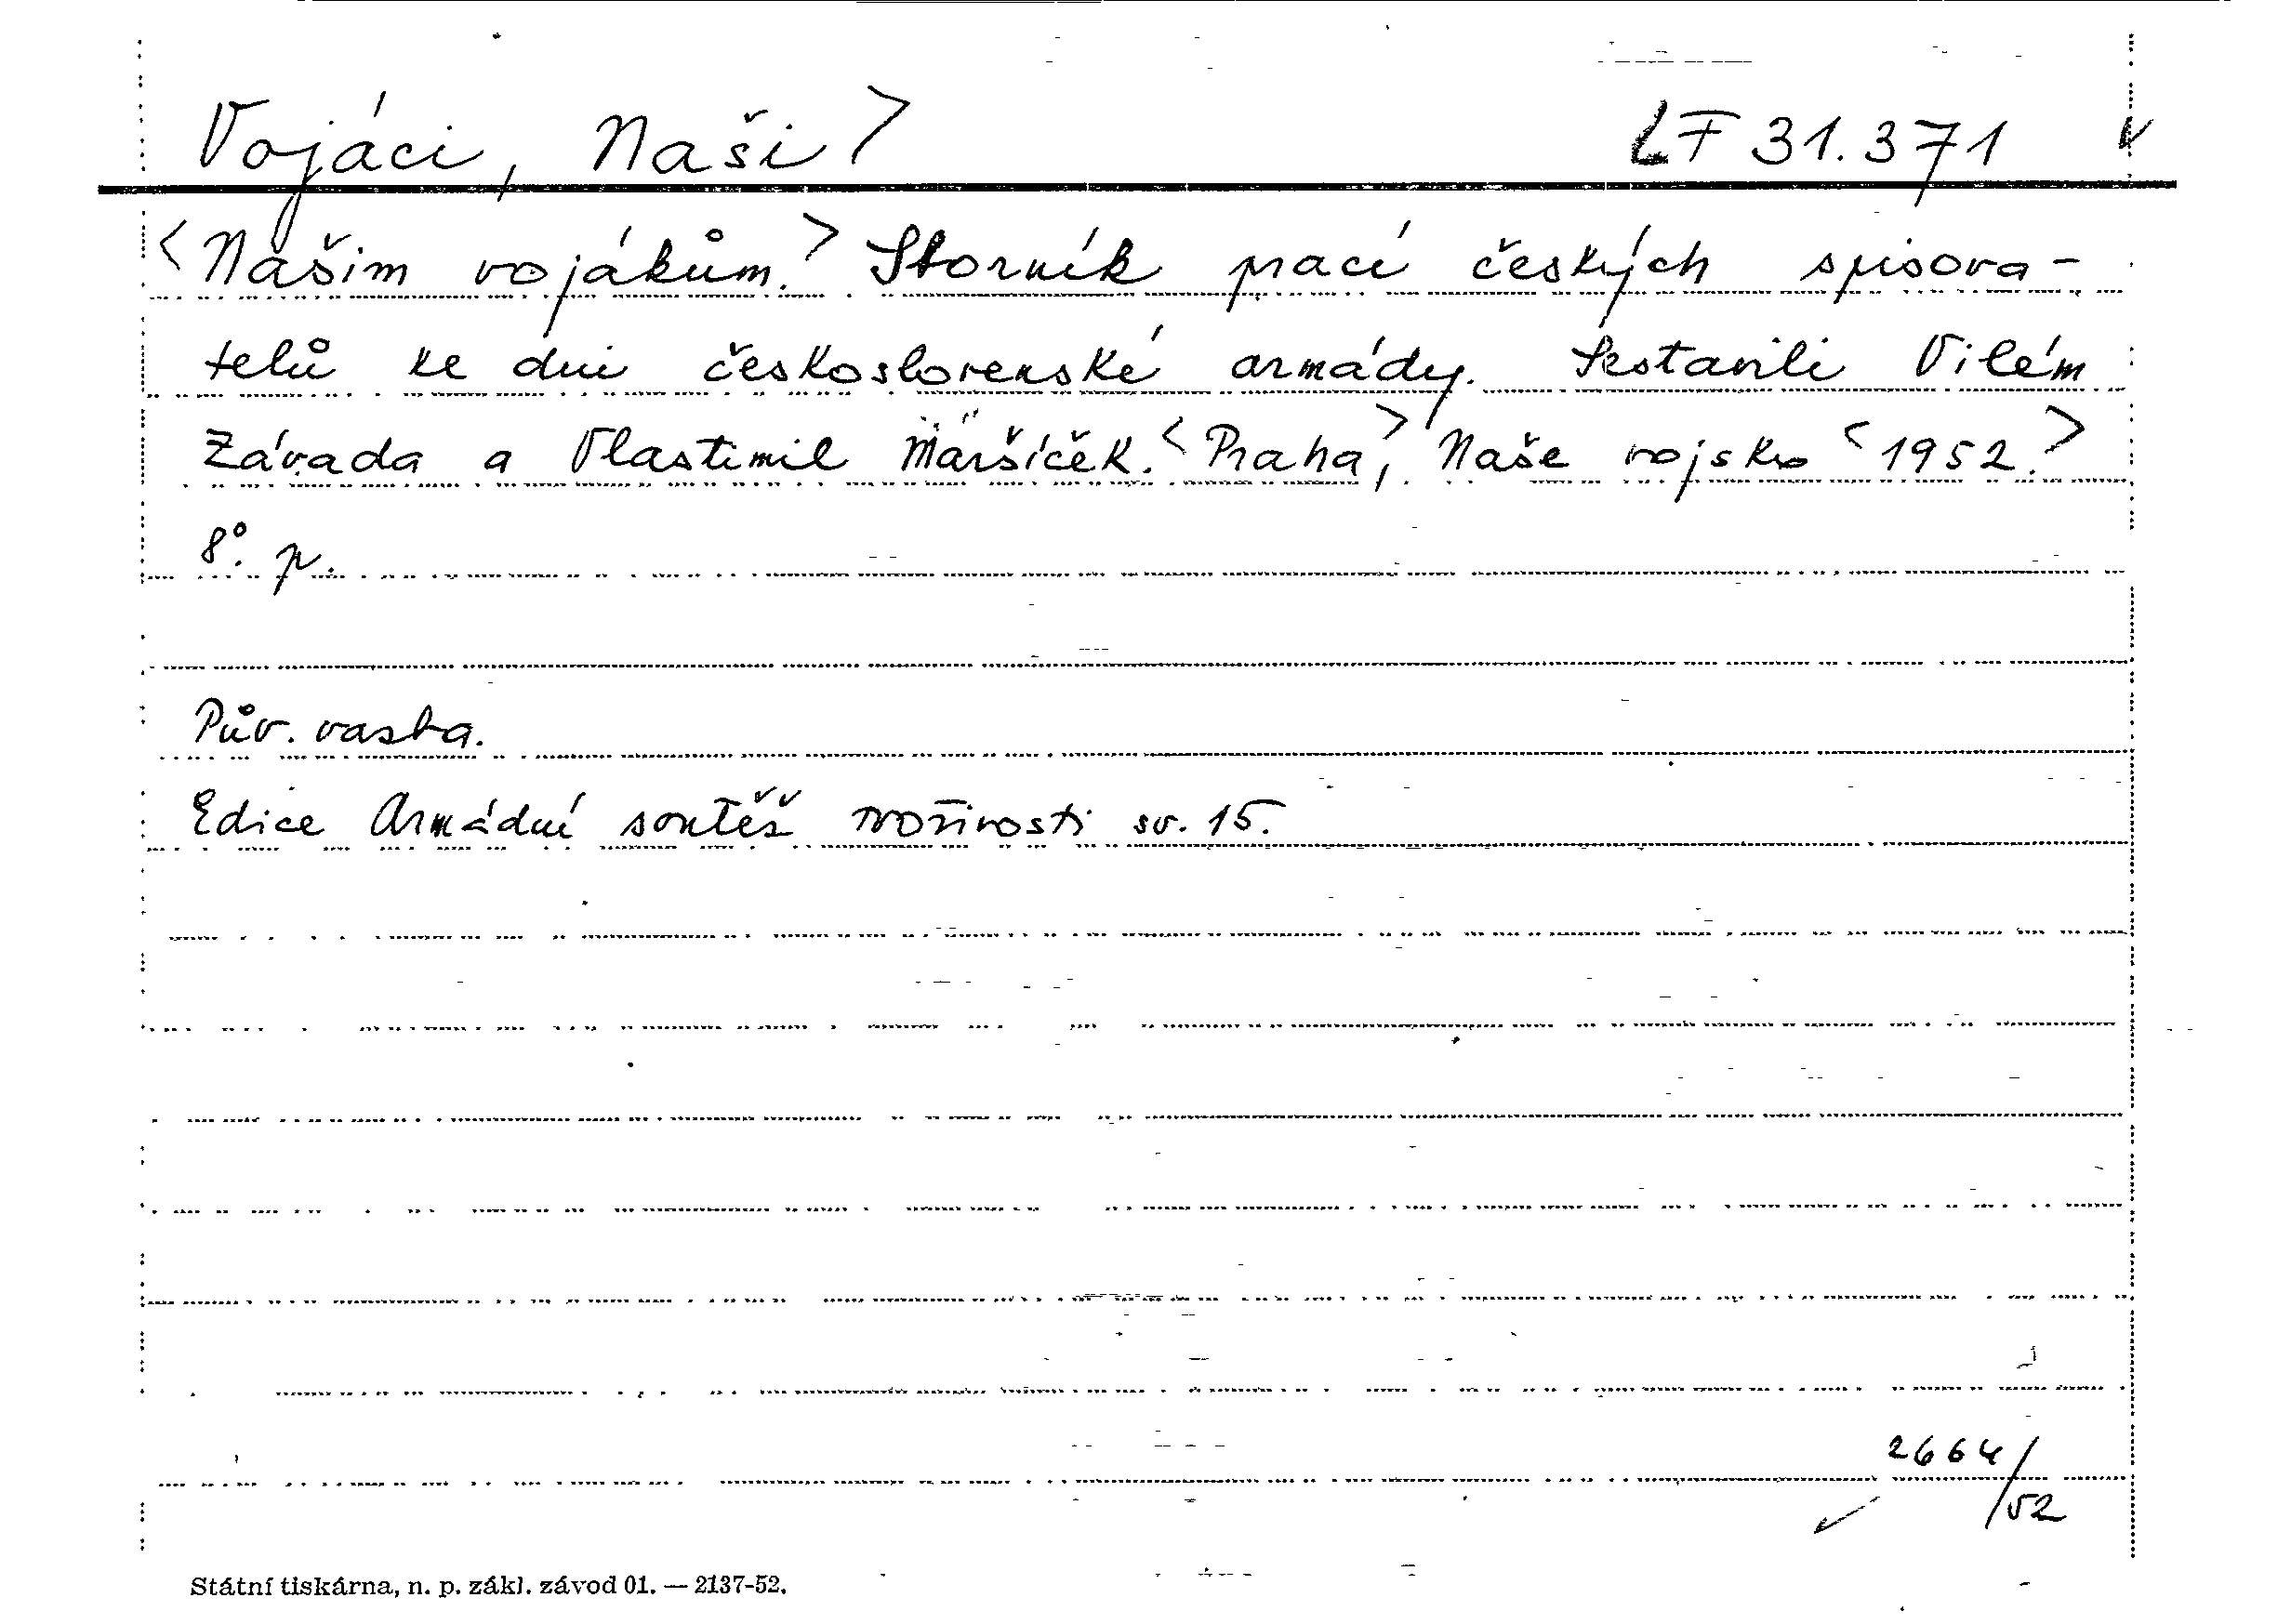 Vojáci, Naši > LF 31.371 ✓
<Našim vojákům.> Sborník prací českých spisova-
telů ke dni československé armády. Sestavili Vilém
Závada a Vlastimil Maršíček. <Praha>, Naše vojsko <1952.>
8°. p.
Pův. vazba.
Edice Armádní soutěž tvořivosti sv. 15.
2664/
52
Státní tiskárna, n. p. zákl. závod 01. — 2137-52.